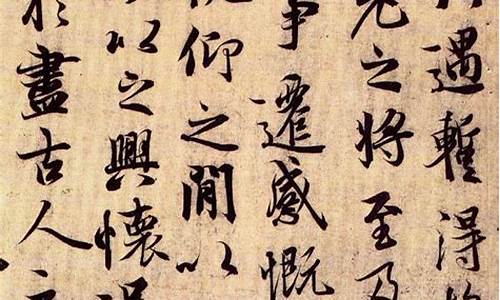 遇暫得
老之將至及
事遷感慨
仰之閒以
以之興懷
於盡古人云